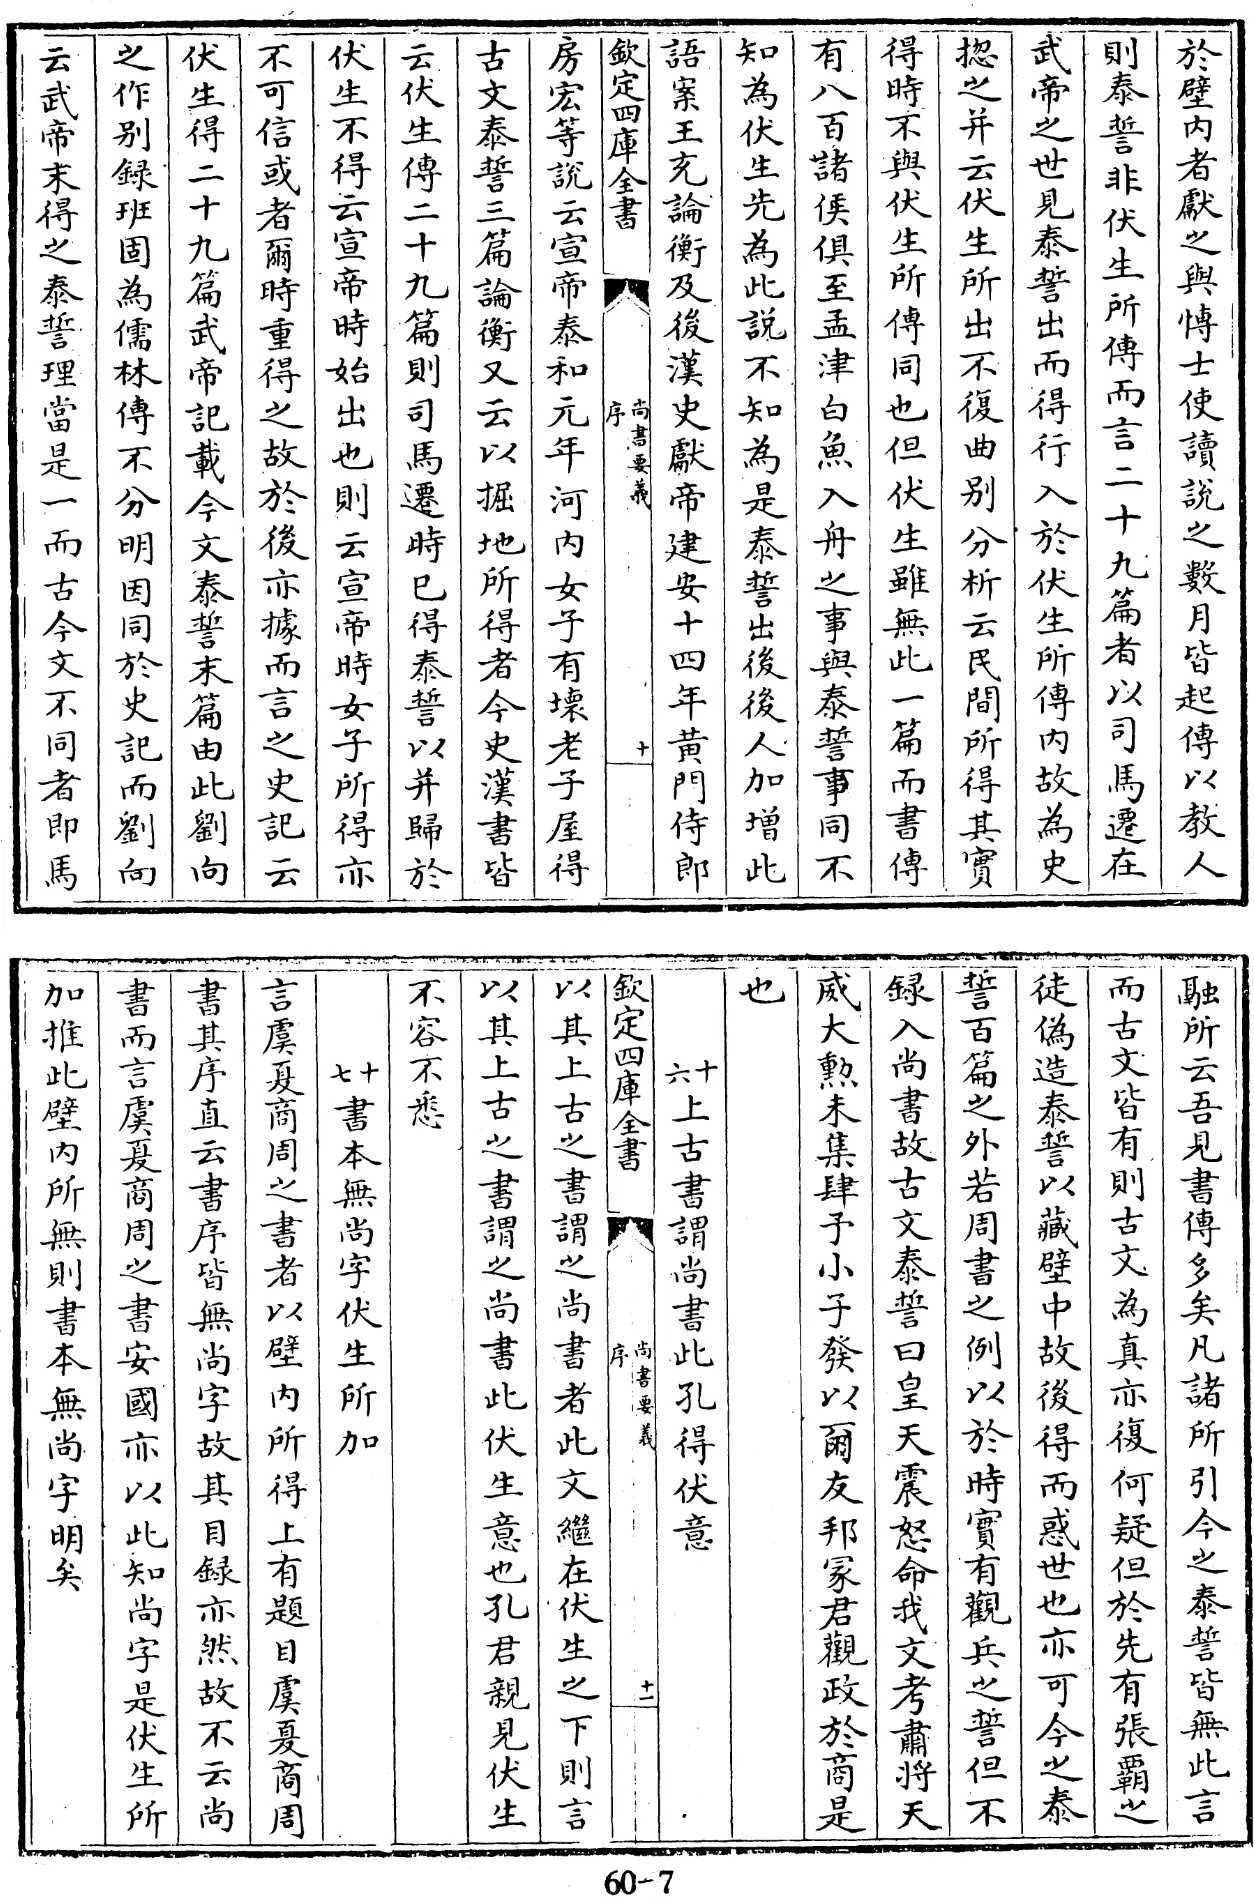 於壁内者獻之與愽士使讀説之數月皆起傳以教人
則泰誓非伏生所傳而言二十九篇者以司馬遷在
武帝之世見泰誓出而得行入於伏生所傳内故為史
揔之并云伏生所出不復曲别分析云民間所得其實
得時不與伏生所傳同也但伏生雖無此一篇而書傳
有八百諸侯俱至孟津白魚入舟之事與泰誓事同不
知為伏生先為此説不知為是泰誓出後後人加增此
語案王充論衡及後漢史獻帝建安十四年黄門侍郎
欽定四庫全書
尚書要義
序
十
房宏等説云宣帝泰和元年河内女子有壞老子屋得
古文泰誓三篇論衡又云以掘地所得者今史漢書皆
云伏生傳二十九篇則司馬遷時已得泰誓以并歸於
伏生不得云宣帝時始出也則云宣帝時女子所得亦
不可信或者爾時重得之故於後亦據而言之史記云
伏生得二十九篇武帝記載今文泰誓末篇由此劉向
之作别録班固為儒林傳不分明因同於史記而劉向
云武帝末得之泰誓理當是一而古今文不同者即馬
融所云吾見書傳多矣凡諸所引今之泰誓皆無此言
而古文皆有則古文為真亦復何疑但於先有張霸之
徒偽造泰誓以藏壁中故後得而惑世也亦可今之泰
誓百篇之外若周書之例以於時實有觀兵之誓但不
録入尚書故古文泰誓曰皇天震怒命我文考肅將天
威大勲未集肆予小子發以爾友邦冢君觀政於商是
也
十六上古書謂尚書此孔得伏意
欽定四庫全書
尚書要義
序
十一
以其上古之書謂之尚書者此文繼在伏生之下則言
以其上古之書謂之尚書此伏生意也孔君親見伏生
不容不悉
十七書本無尚字伏生所加
言虞夏商周之書者以壁内所得上有題目虞夏商周
書其序直云書序皆無尚字故其目録亦然故不云尚
書而言虞夏商周之書安國亦以此知尚字是伏生所
加推此壁内所無則書本無尚字明矣
60-7